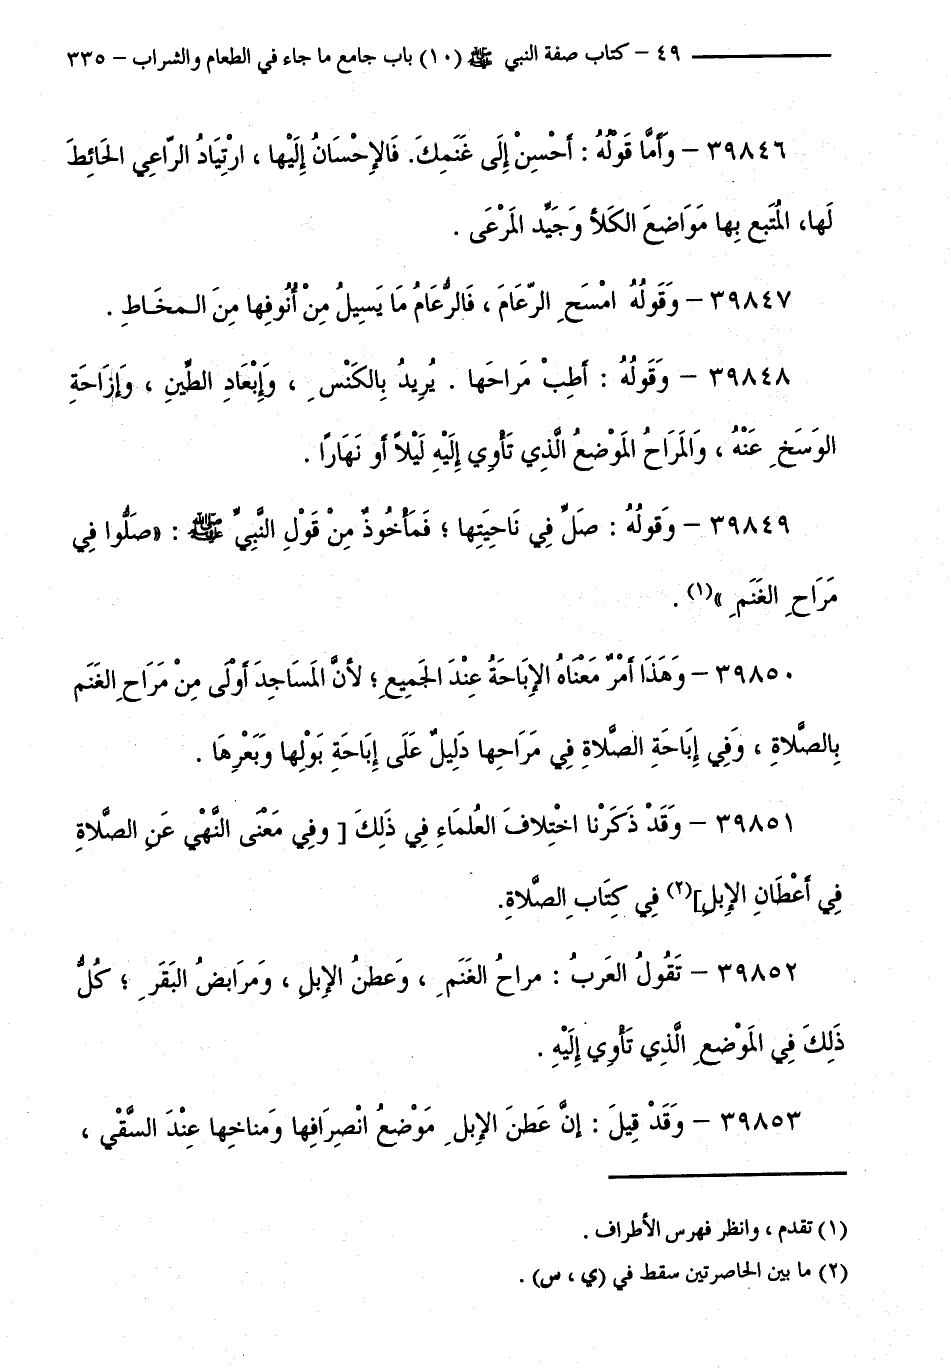 ٤٩ – كتاب صفة النبي ﷺ (١٠) باب جامع ما جاء في الطعام والشراب – ٣٣٥
٣٩٨٤٦ – وَأَمَّا قَوْلُهُ : أَحْسِنْ إِلَى غَنَمِكَ. فَالإِحْسَانُ إِلَيْها ، ارتِْيَادُ الرّاعِي الحَائِطَ
لَها، المُتَبع بِها مَوَاضعَ الكَلأ وَجَيِّد المَرْعَى .
٣٩٨٤٧ – وَقَولُهُ امْسَحِ الرّعَامَ ، فَالرُّعَامُ مَا يَسِيلُ مِنْ أُنُوفِها مِنَ الـمخَـاطِ .
٣٩٨٤٨ – وَقَولُهُ : أَطِبْ مَراحَها . يُرِيدُ بِالكَنْسِ ، وَإِبْعَادِ الطِّينِ ، وَإِزَاحَةِ
الوَسَخِ عَنْهُ ، وَالمَرَاحُ المَوْضعُ الَّذِي تَأْوِي إِلَيْهِ لَيْلاً أَو نَهَارًا .
٣٩٨٤٩ – وَقولُهُ : صَلِّ فِي نَاحِيَتِها ؛ فَمَأْخُوذٌ مِنْ قَوْلِ النَّبِيِّ ﷺ : «صَلُّوا فِي
مَرَاحِ الغَنَمِ »(١) .
٣٩٨٥٠ – وَهَذَا أَمْرٌ مَعْنَاهُ الإِبَاحَةُ عِنْدَ الجَمِيعِ ؛ لأنَّ المَسَاجِدَ أَوْلَى مِنْ مَرَاحِ الغَنَم
بِالصَّلاةِ ، وَفِي إِبَاحَةِ الصَّلاةِ فِي مَرَاحِها دَلِيلٌ عَلَى إِبَاحَةِ بَوْلِها وَبَعْرِهَا .
٣٩٨٥١ – وَقَدْ ذَكَرْنا اخْتِلافَ العُلمَاءِ فِي ذَلِكَ [ وفِي مَعْنَى النَّهْي عَنِ الصَّلاةِ
فِي أَعْطَانِ الإِبلِ](٢) فِي كِتَابِ الصَّلاةِ.
٣٩٨٥٢ – تَقُولُ العَربُ : مراحُ الغَنَمِ ، وَعطنُ الإِبلِ ، وَمرَابضُ البَقَرِ ؛ كُلُّ
ذَلِكَ فِي المَوْضعِ الَّذِي تَأْوِي إِلَيْهِ .
٣٩٨٥٣ – وَقَدْ قِيلَ : إنَّ عَطنَ الإِبلِ مَوْضعُ انْصِرَافِها وَمناخِها عِنْدَ السَّقْي ،
(١) تقدم ، وانظر فهرس الأطراف .
(٢) ما بين الحاصرتين سقط في (ي ، س) .